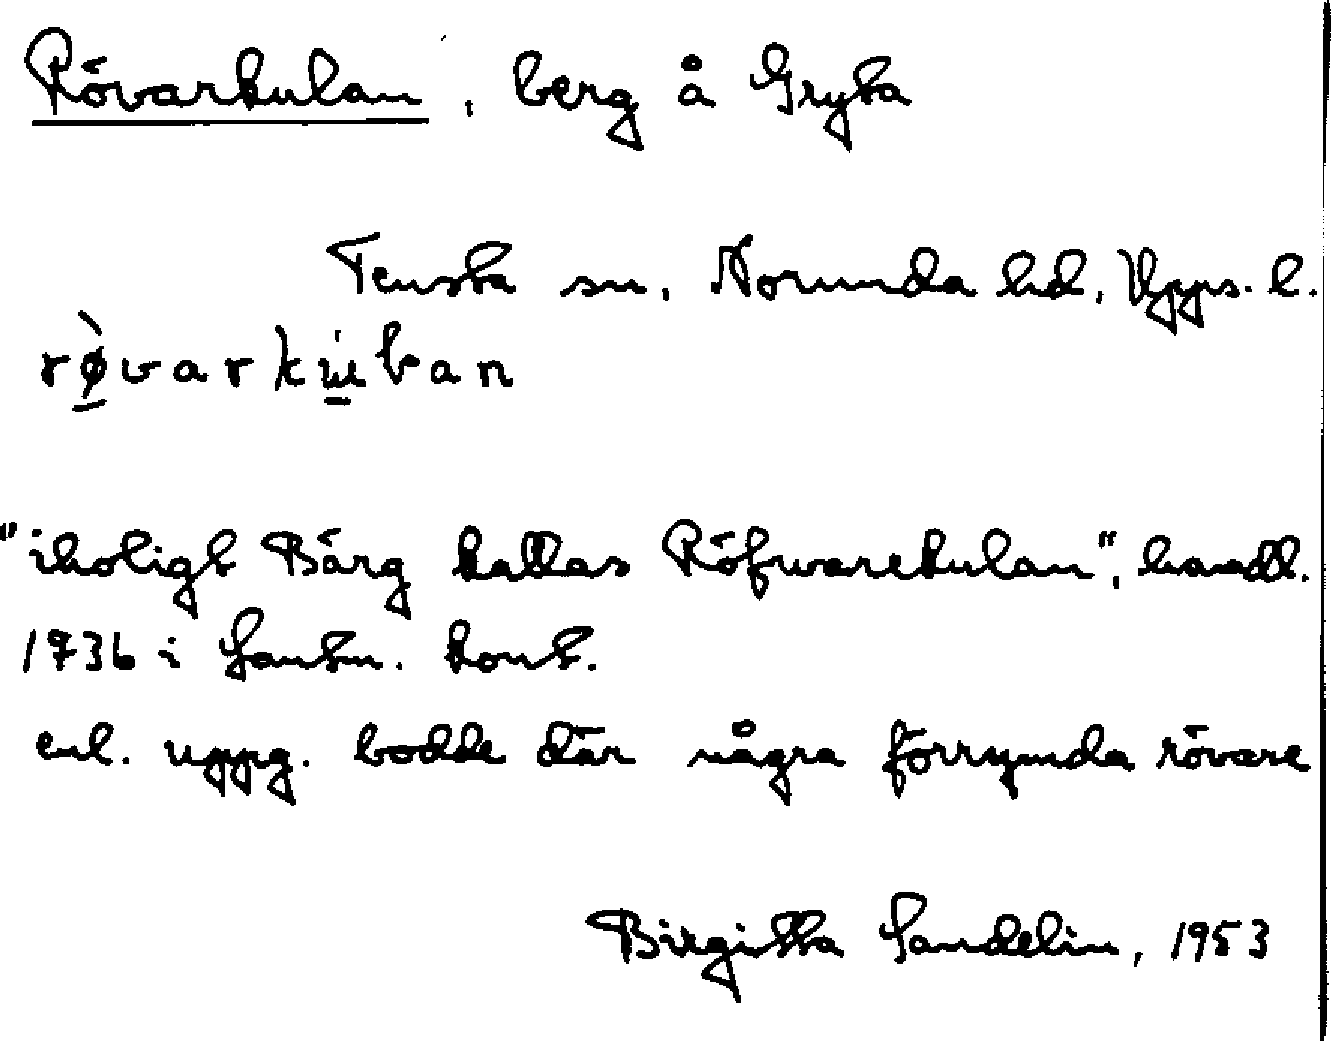 Rövarkulan, berg å Gryta
Tensta sn, Norunda hd, Upps. l.
"iholigt Bärg kallas Röfwarekulan", handl.
1736 i Lantm. kont.
enl. uppg. bodde där några förrymda rövare
Birgitta Sandelin, 1953